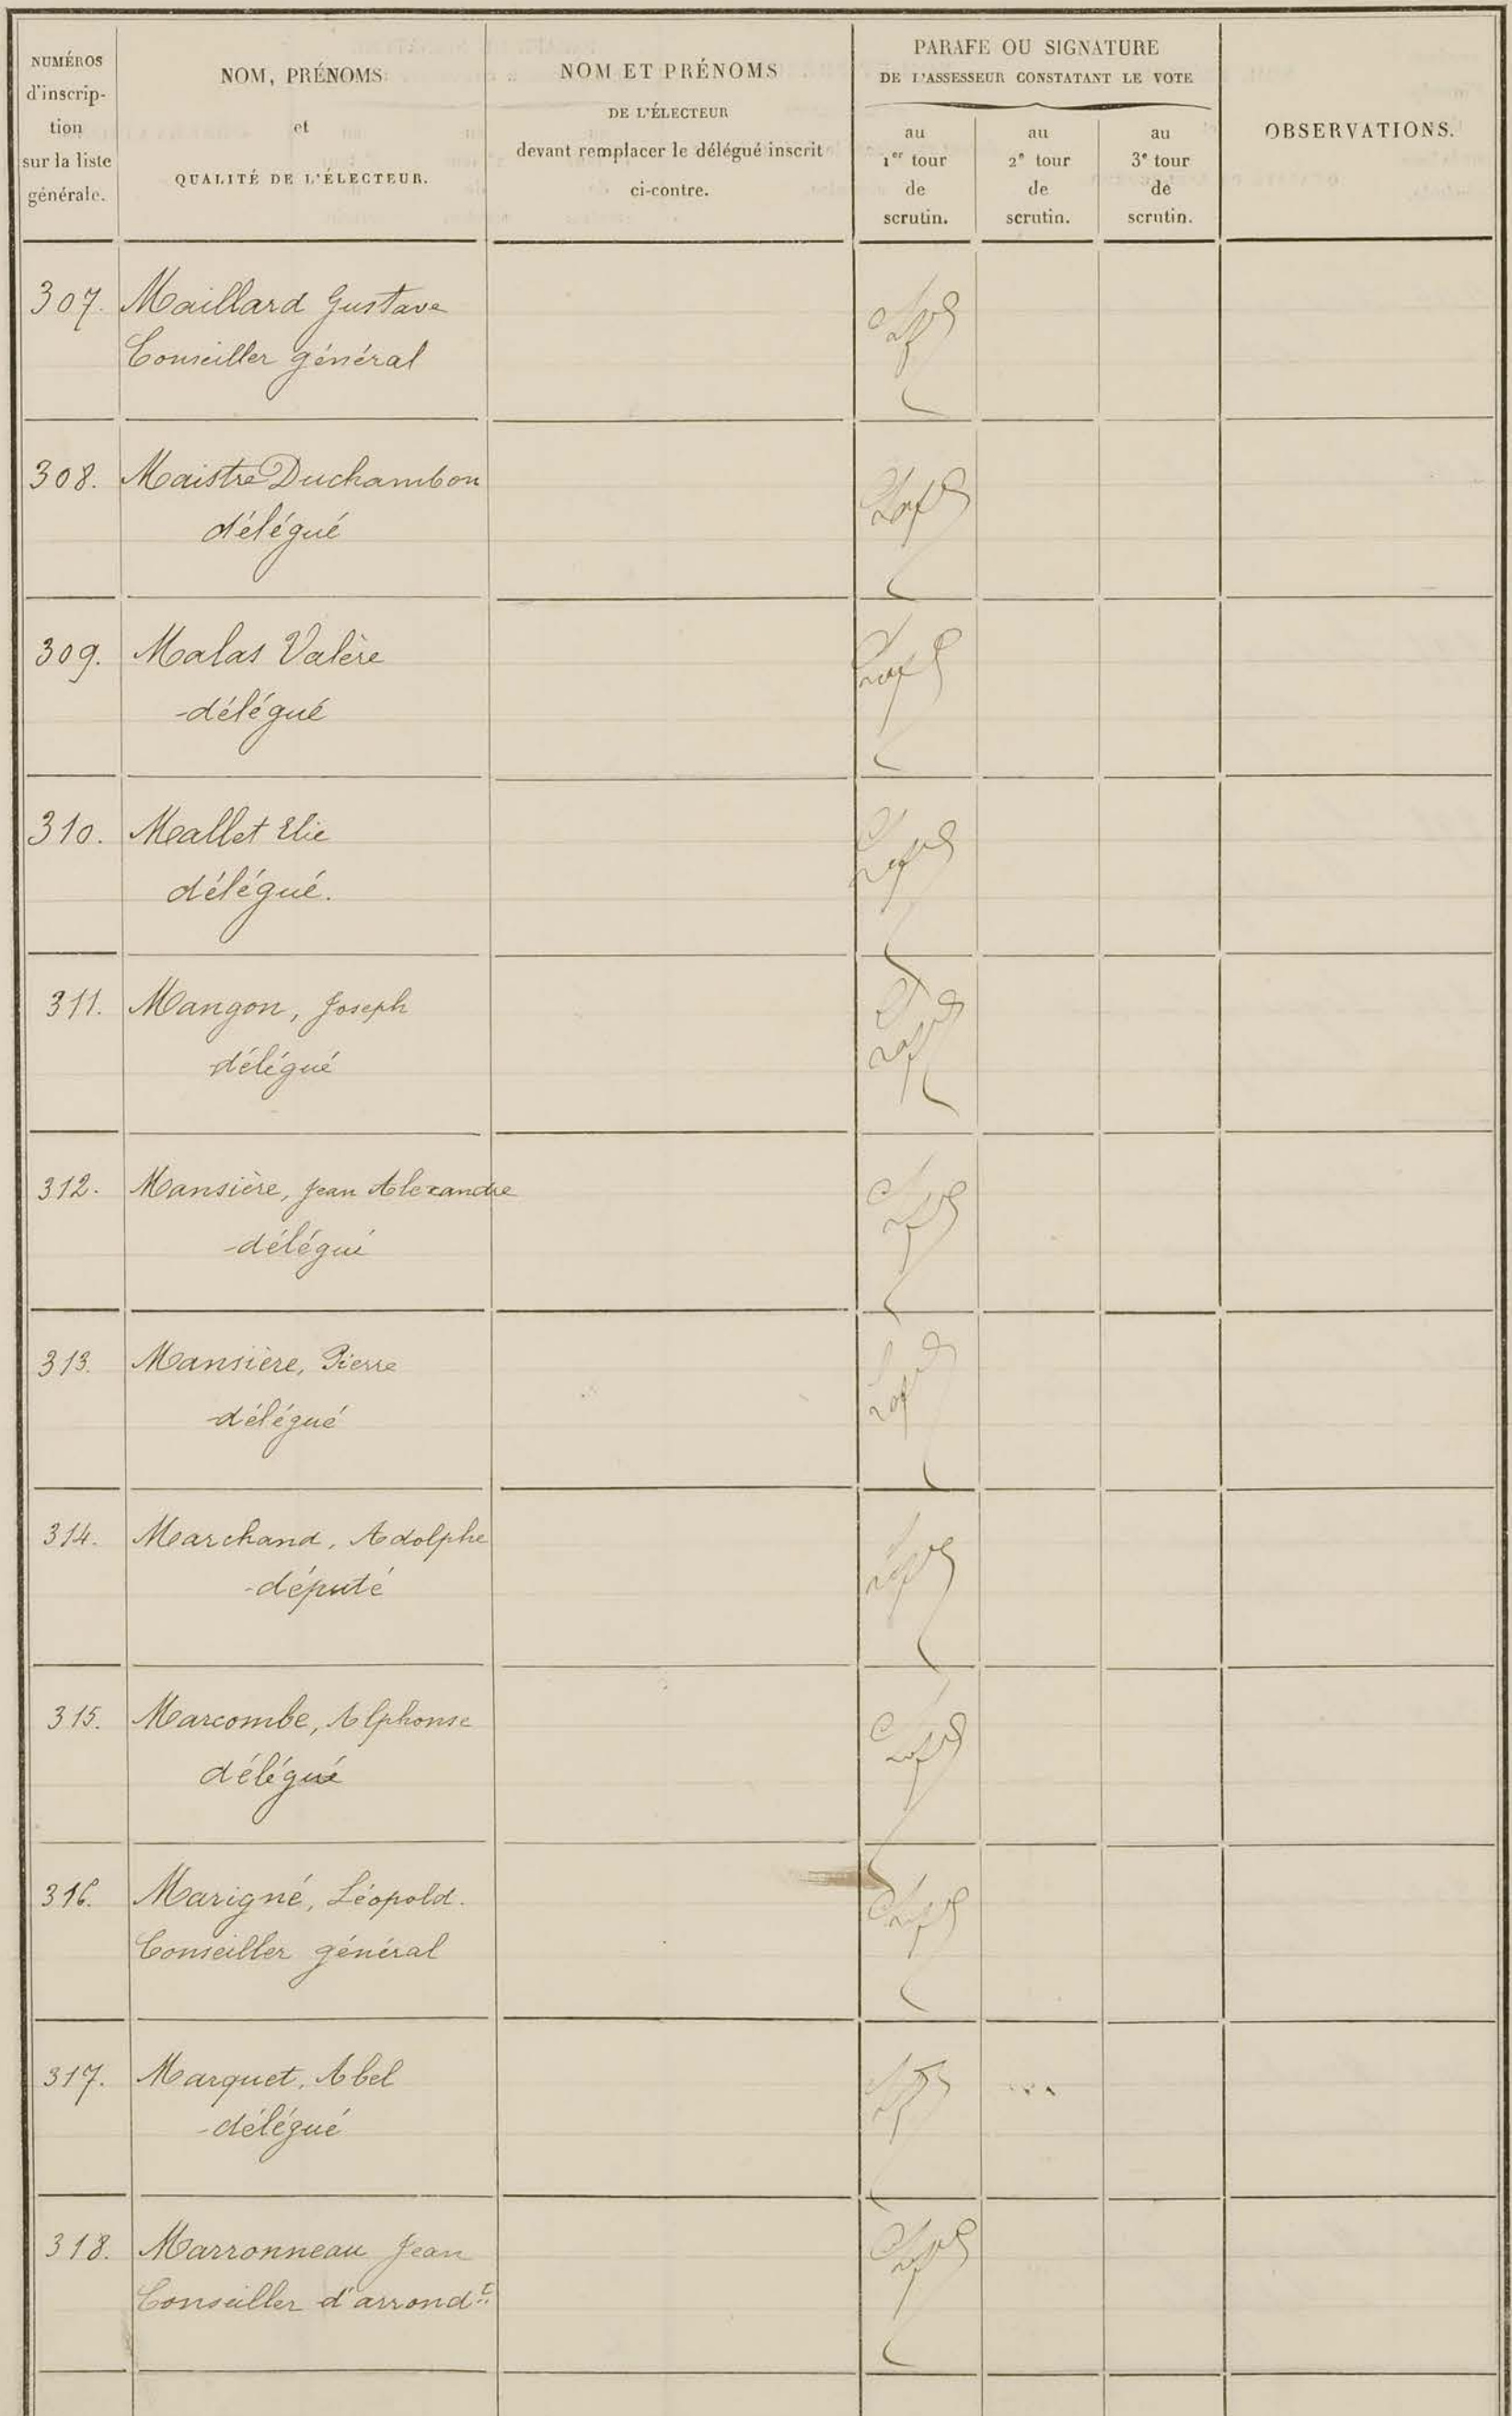 NUMÉROS
d'inscrip-
tion
sur la liste
générale.
NOM, PRÉNOMS
et
QUALITÉ DE L'ÉLECTEUR.
NOM ET PRÉNOMS
DE L'ÉLECTEUR
devant remplacer le délégué inscrit
ci-contre.
PARAFE OU SIGNATURE
DE L'ASSESSEUR CONSTATANT LE VOTE
au
1er tour
de
scrutin.
au
2e tour
de
scrutin.
au
3e tour
de
scrutin.
OBSERVATIONS.
307. Maillard Gustave
Conseiller général
308. Maistre Duchambon
délégué
309. Malas Valère
délégué
310. Mallet Elie
délégué.
311. Mangon, Joseph
délégué
312. Mansière, Jean Alexandre
délégué
313. Mansière, Pierre
délégué
314. Marchand, Adolphe
député
315. Marcombe, Alphonse
délégué
316. Marigné, Léopold.
Conseiller général
317. Marquet, Abel
délégué
318. Marronneau Jean
Conseiller d'arrondt